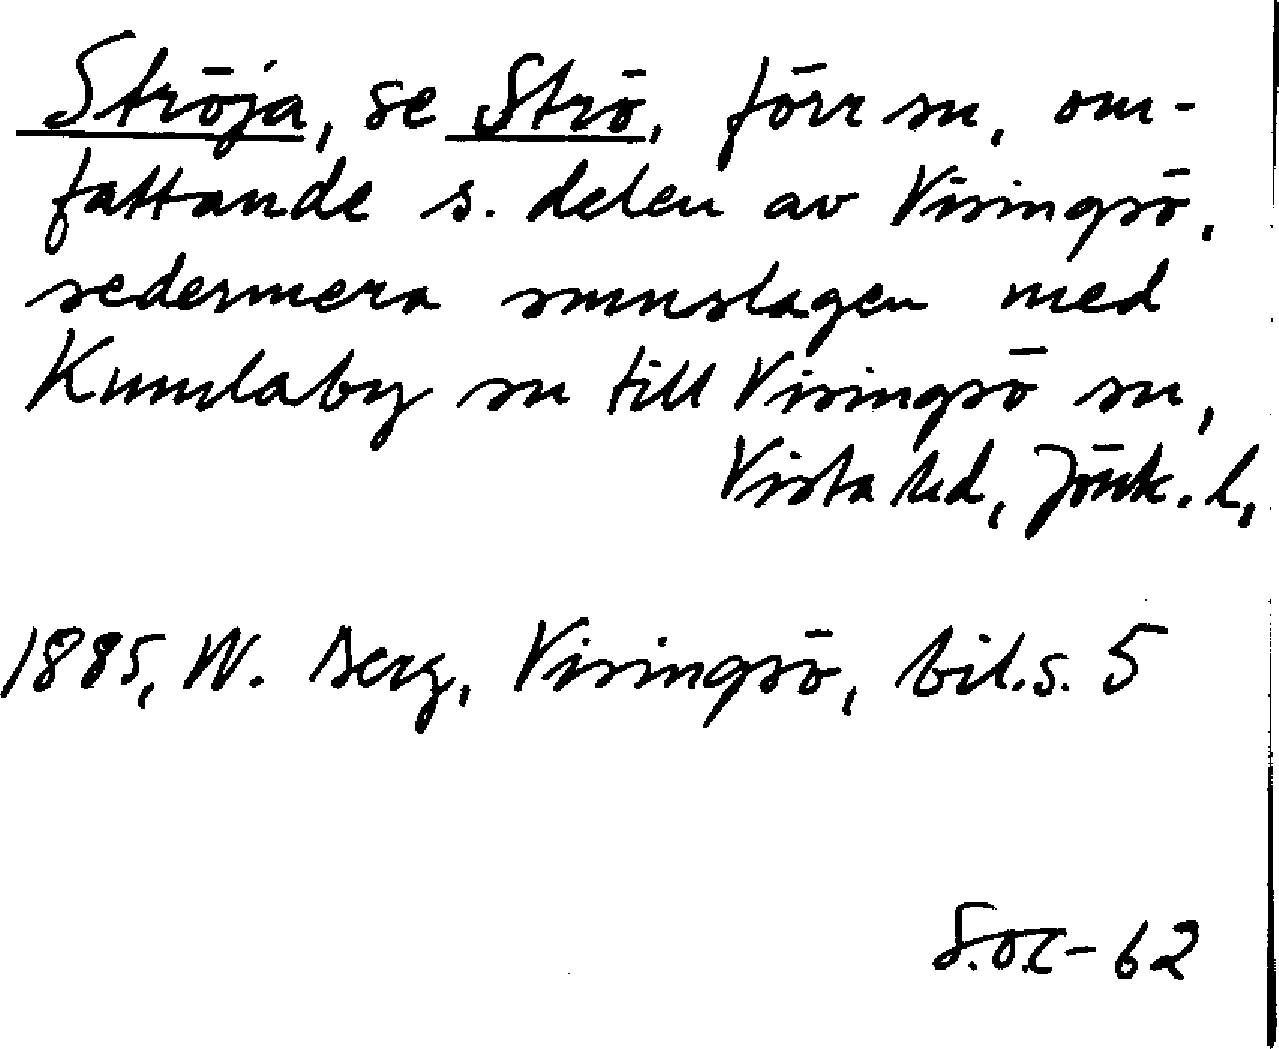 Ströja, se Strö, förr sn, om-
fattande s. delen av Visingsö,
sedermera sammslagen med
Kumlaby sn till Visingsö sn,
Vista hd, Jönk. l,
1885, W. Berg, Visingsö, bil. s. 5
S.o.C-62